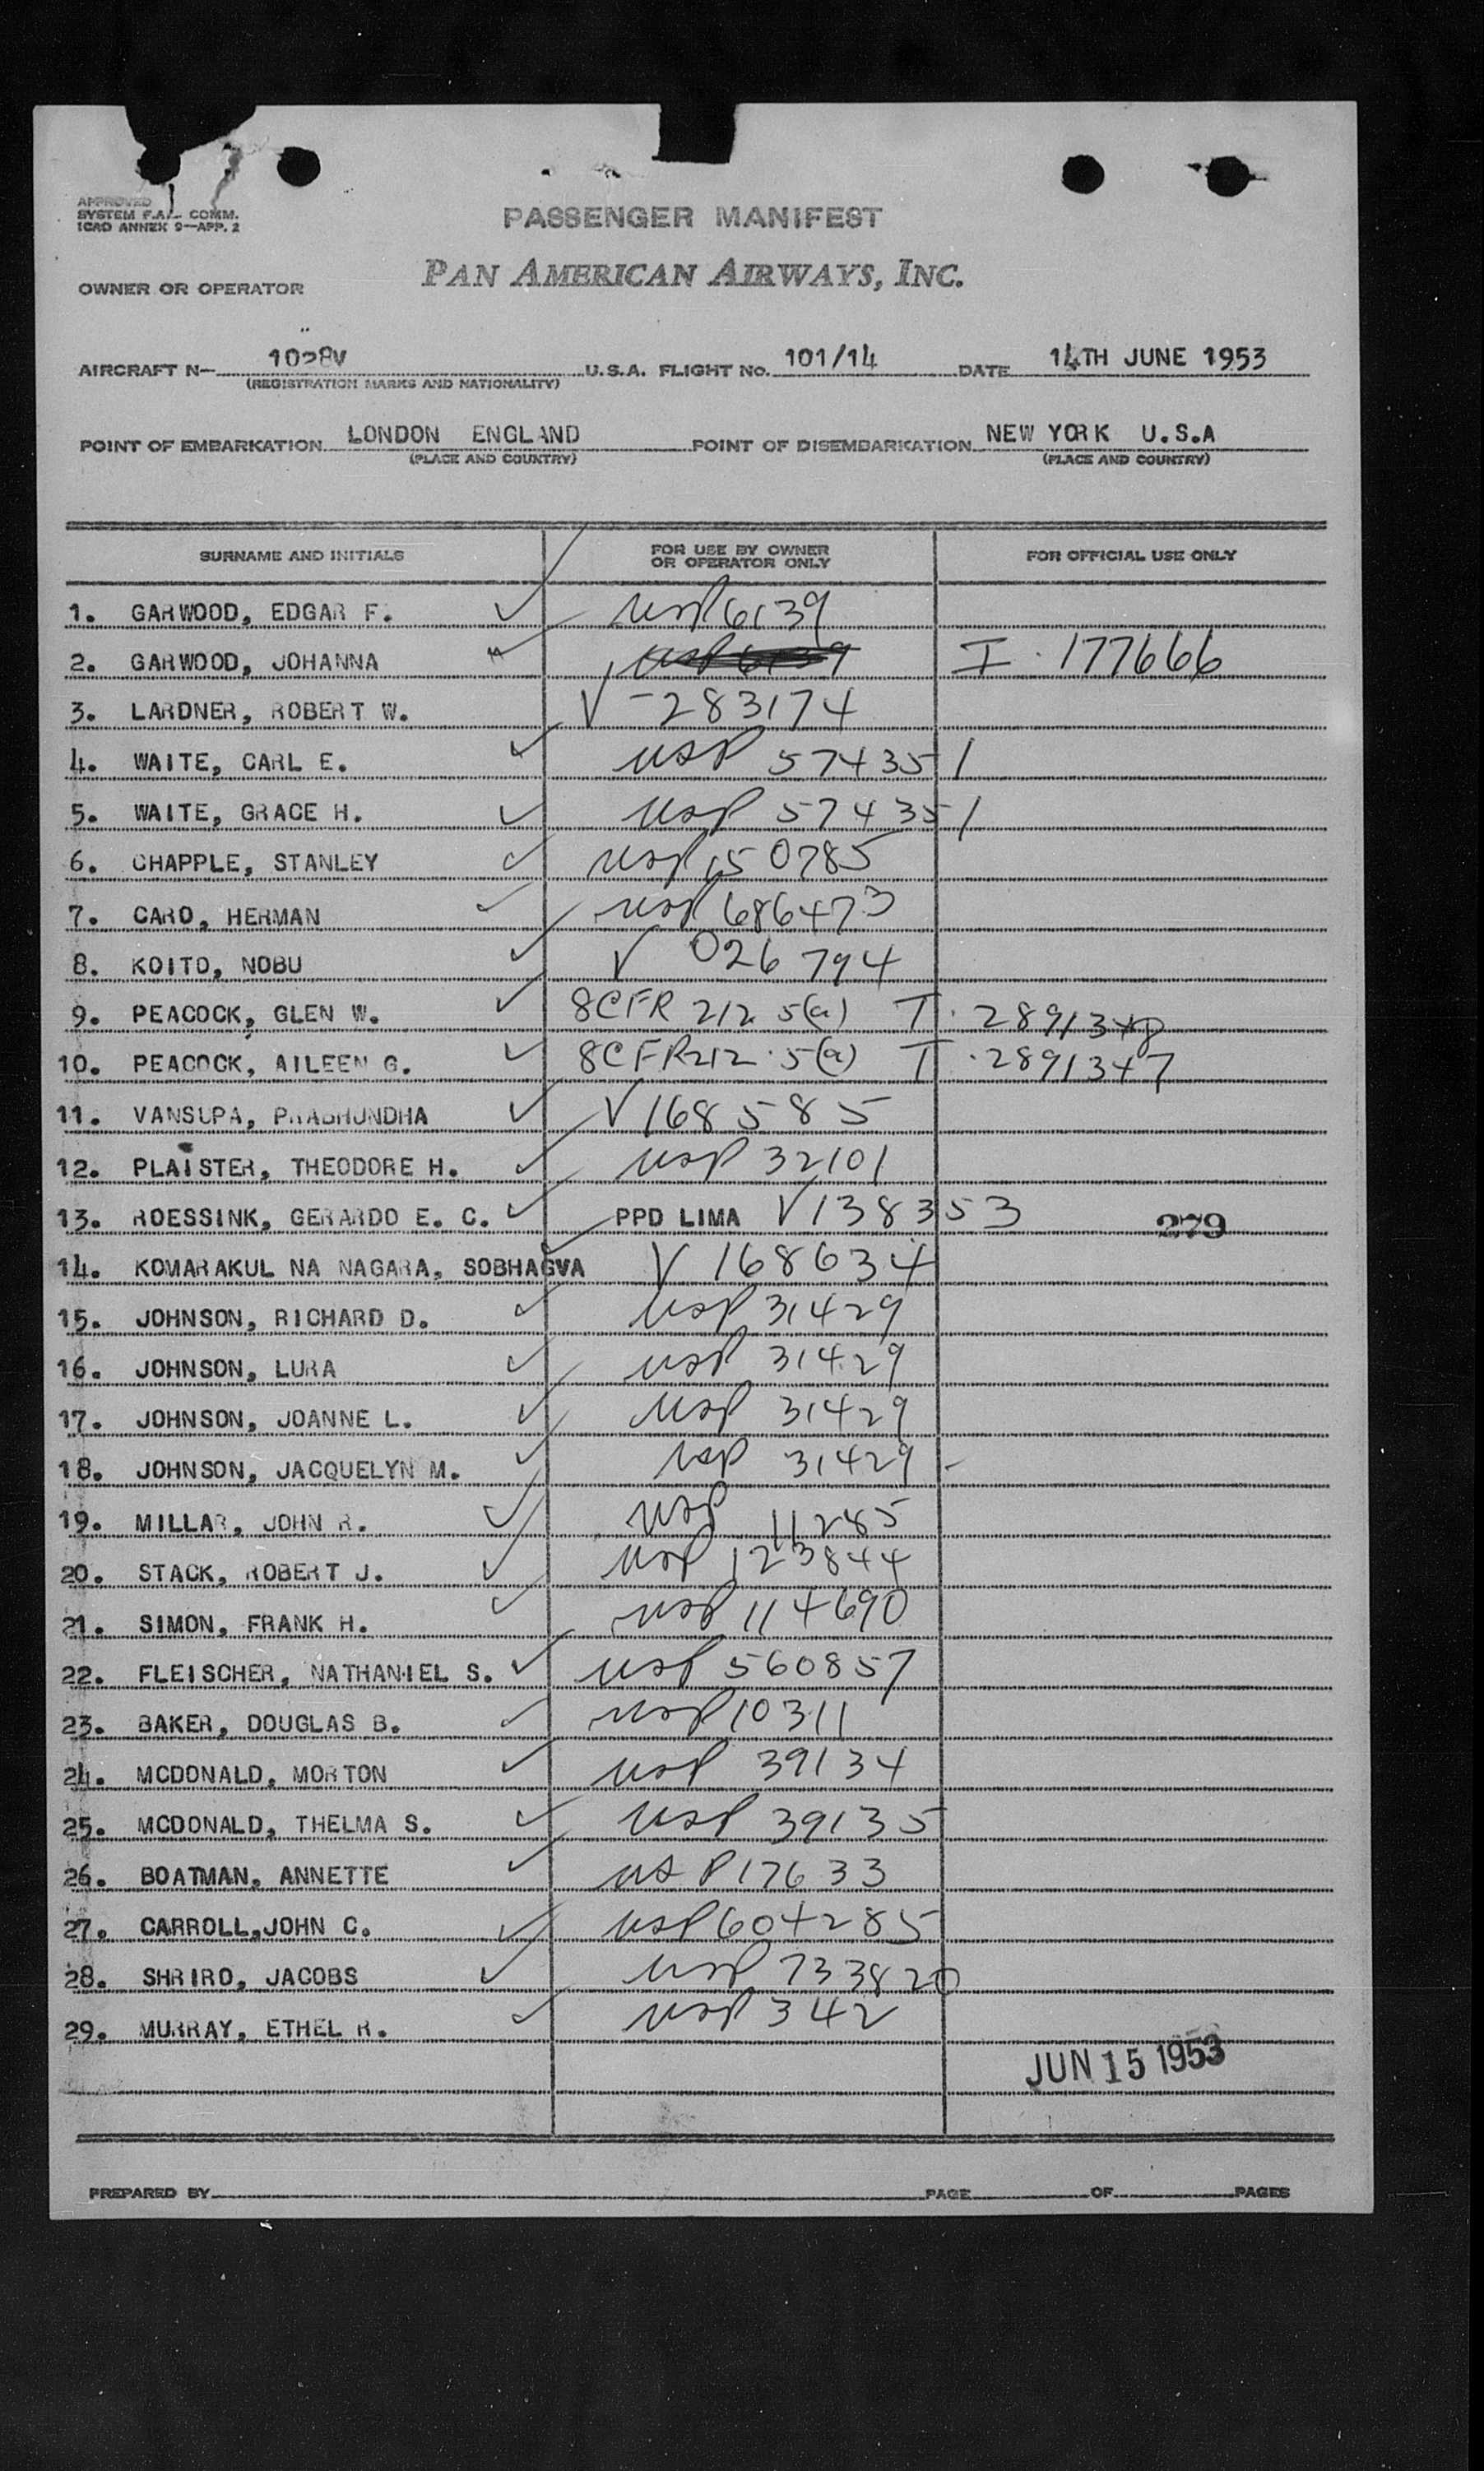 APPROVED
SYSTEM F.A.L. COMM.
ICAO ANNEX 9—APP. 2
PASSENGER MANIFEST
OWNER OR OPERATOR PAN AMERICAN AIRWAYS, INC.
AIRCRAFT N— 1028V U.S.A. FLIGHT NO. 101/14 DATE 14TH JUNE 1953
(REGISTRATION MARKS AND NATIONALITY)
POINT OF EMBARKATION LONDON ENGLAND POINT OF DISEMBARKATION NEW YORK U.S.A
(PLACE AND COUNTRY) (PLACE AND COUNTRY)
SURNAME AND INITIALS FOR USE BY OWNER OR OPERATOR ONLY FOR OFFICIAL USE ONLY
1. GARWOOD, EDGAR F. USP 6139
2. GARWOOD, JOHANNA USP 6139 I. 177666
3. LARDNER, ROBERT W. V-283174
4. WAITE, CARL E. USP 574351
5. WAITE, GRACE H. USP 574351
6. CHAPPLE, STANLEY USP 150785
7. CARO, HERMAN USP 686473
8. KOITO, NOBU V 026794
9. PEACOCK, GLEN W. 8CFR 212.5(a) T. 2891348
10. PEACOCK, AILEEN G. 8CFR 212.5(a) T. 2891347
11. VANSUPA, PRABHUNDHA V 168585
12. PLAISTER, THEODORE H. USP 32101
13. ROESSINK, GERARDO E. C. PPD LIMA V 138353 279
14. KOMARAKUL NA NAGARA, SOBHAGVA V 168634
15. JOHNSON, RICHARD D. USP 31429
16. JOHNSON, LURA USP 31429
17. JOHNSON, JOANNE L. USP 31429
18. JOHNSON, JACQUELYN M. USP 31429 -
19. MILLAR, JOHN R. USP 11285
20. STACK, ROBERT J. USP 123844
21. SIMON, FRANK H. USP 114690
22. FLEISCHER, NATHANIEL S. USP 560857
23. BAKER, DOUGLAS B. USP 10311
24. MCDONALD, MORTON USP 39134
25. MCDONALD, THELMA S. USP 39135
26. BOATMAN, ANNETTE USP 17633
27. CARROLL,JOHN C. USP 604285
28. SHRIRO, JACOBS USP 733820
29. MURRAY, ETHEL R. USP 342
JUN 15 1953
PREPARED BY PAGE OF PAGES